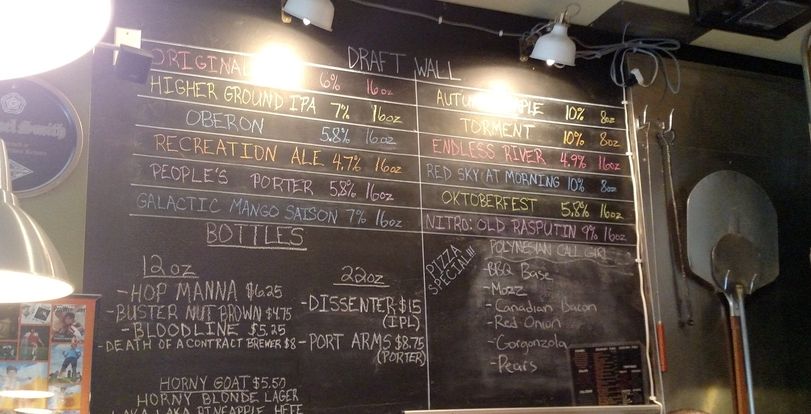 DRAFT WALL
ORIGINAL 6% 16oz
HIGHER GROUND IPA 7% 16oz
OBERON 5.8% 16oz
RECREATION ALE 4.7% 16oz
PEOPLE'S PORTER 5.8% 16oz
GALACTIC MANGO SAISON 7% 16oz
10% 8oz
TORMENT 10% 8oz
ENDLESS RIVER 4.9% 16oz
RED SKY AT MORNING 10% 8oz
OKTOBERFEST 5.8% 16oz
NITRO: OLD RASPUTIN 9% 16oz
BOTTLES
12oz
-HOP MANNA $6.25
-BUSTER NUT BROWN $4.75
-BLOODLINE $5.25
-DEATH OF A CONTRACT BREWER $8
HORNY GOAT $5.50
HORNY BLONDE LAGER
LAKA LAKA PINEAPPLE HEFE
22oz
-DISSENTER $15
(IPL)
-PORT ARMS $8.75
(PORTER)
PIZZA
SPECIAL!!!
POLYNESIAN CALL GIRL
-BBQ Base
-Mozz
-Canadian Bacon
-Red Onion
-Gorgonzola
-Pears
Smith